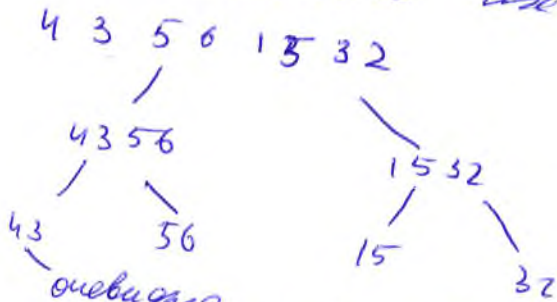 4 3 5 6 1 5 3 2
4356
1532
43
56
15
32
очевидно